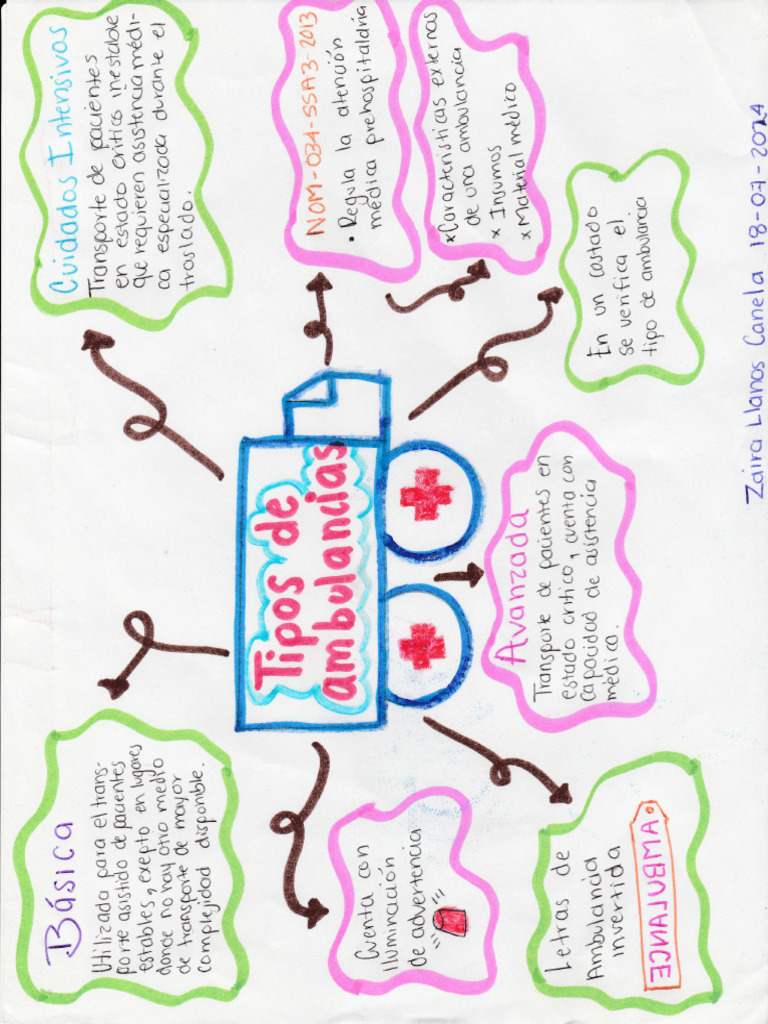 Básica
Utilizada para el trans-
porte asistido de pacientes
estables, exepto en lugares
donde no hay otro medio
de transporte de mayor
complejidad disponible.
Cuidados Intensivos
Transporte de pacientes
en estado critico inestable
que requieren asistencia médi-
ca especializada durante el
traslado.
Tipos de
ambulancias
NOM-034-SSA3-2013
• Regula la atención
médica prehospitalaria
*Características externas
de una ambulancia
x Insumos
x Material médico
Cuenta con
iluminación
de advertencia
Avanzada
Transporte de pacientes en
estado critico, cuenta con
capacidad de asistencia
médica.
En un costado
se verifica el
tipo de ambulancia
Letras de
Ambulancia
invertida
AMBULANCE
Zaira Llanos Canela 18-07-2024